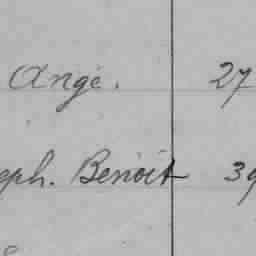 Ange. 27
eph. Benoit 39